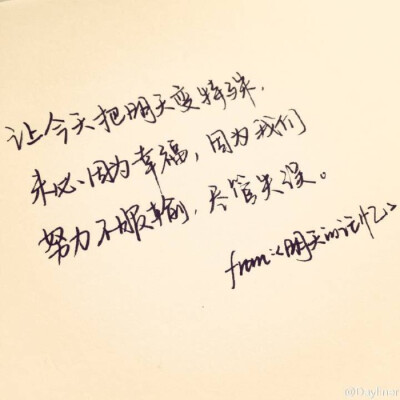 让今天把明天变特殊.
未必因为幸福,因为我们
努力不服输,尽管失误。
from:《明天的记忆》